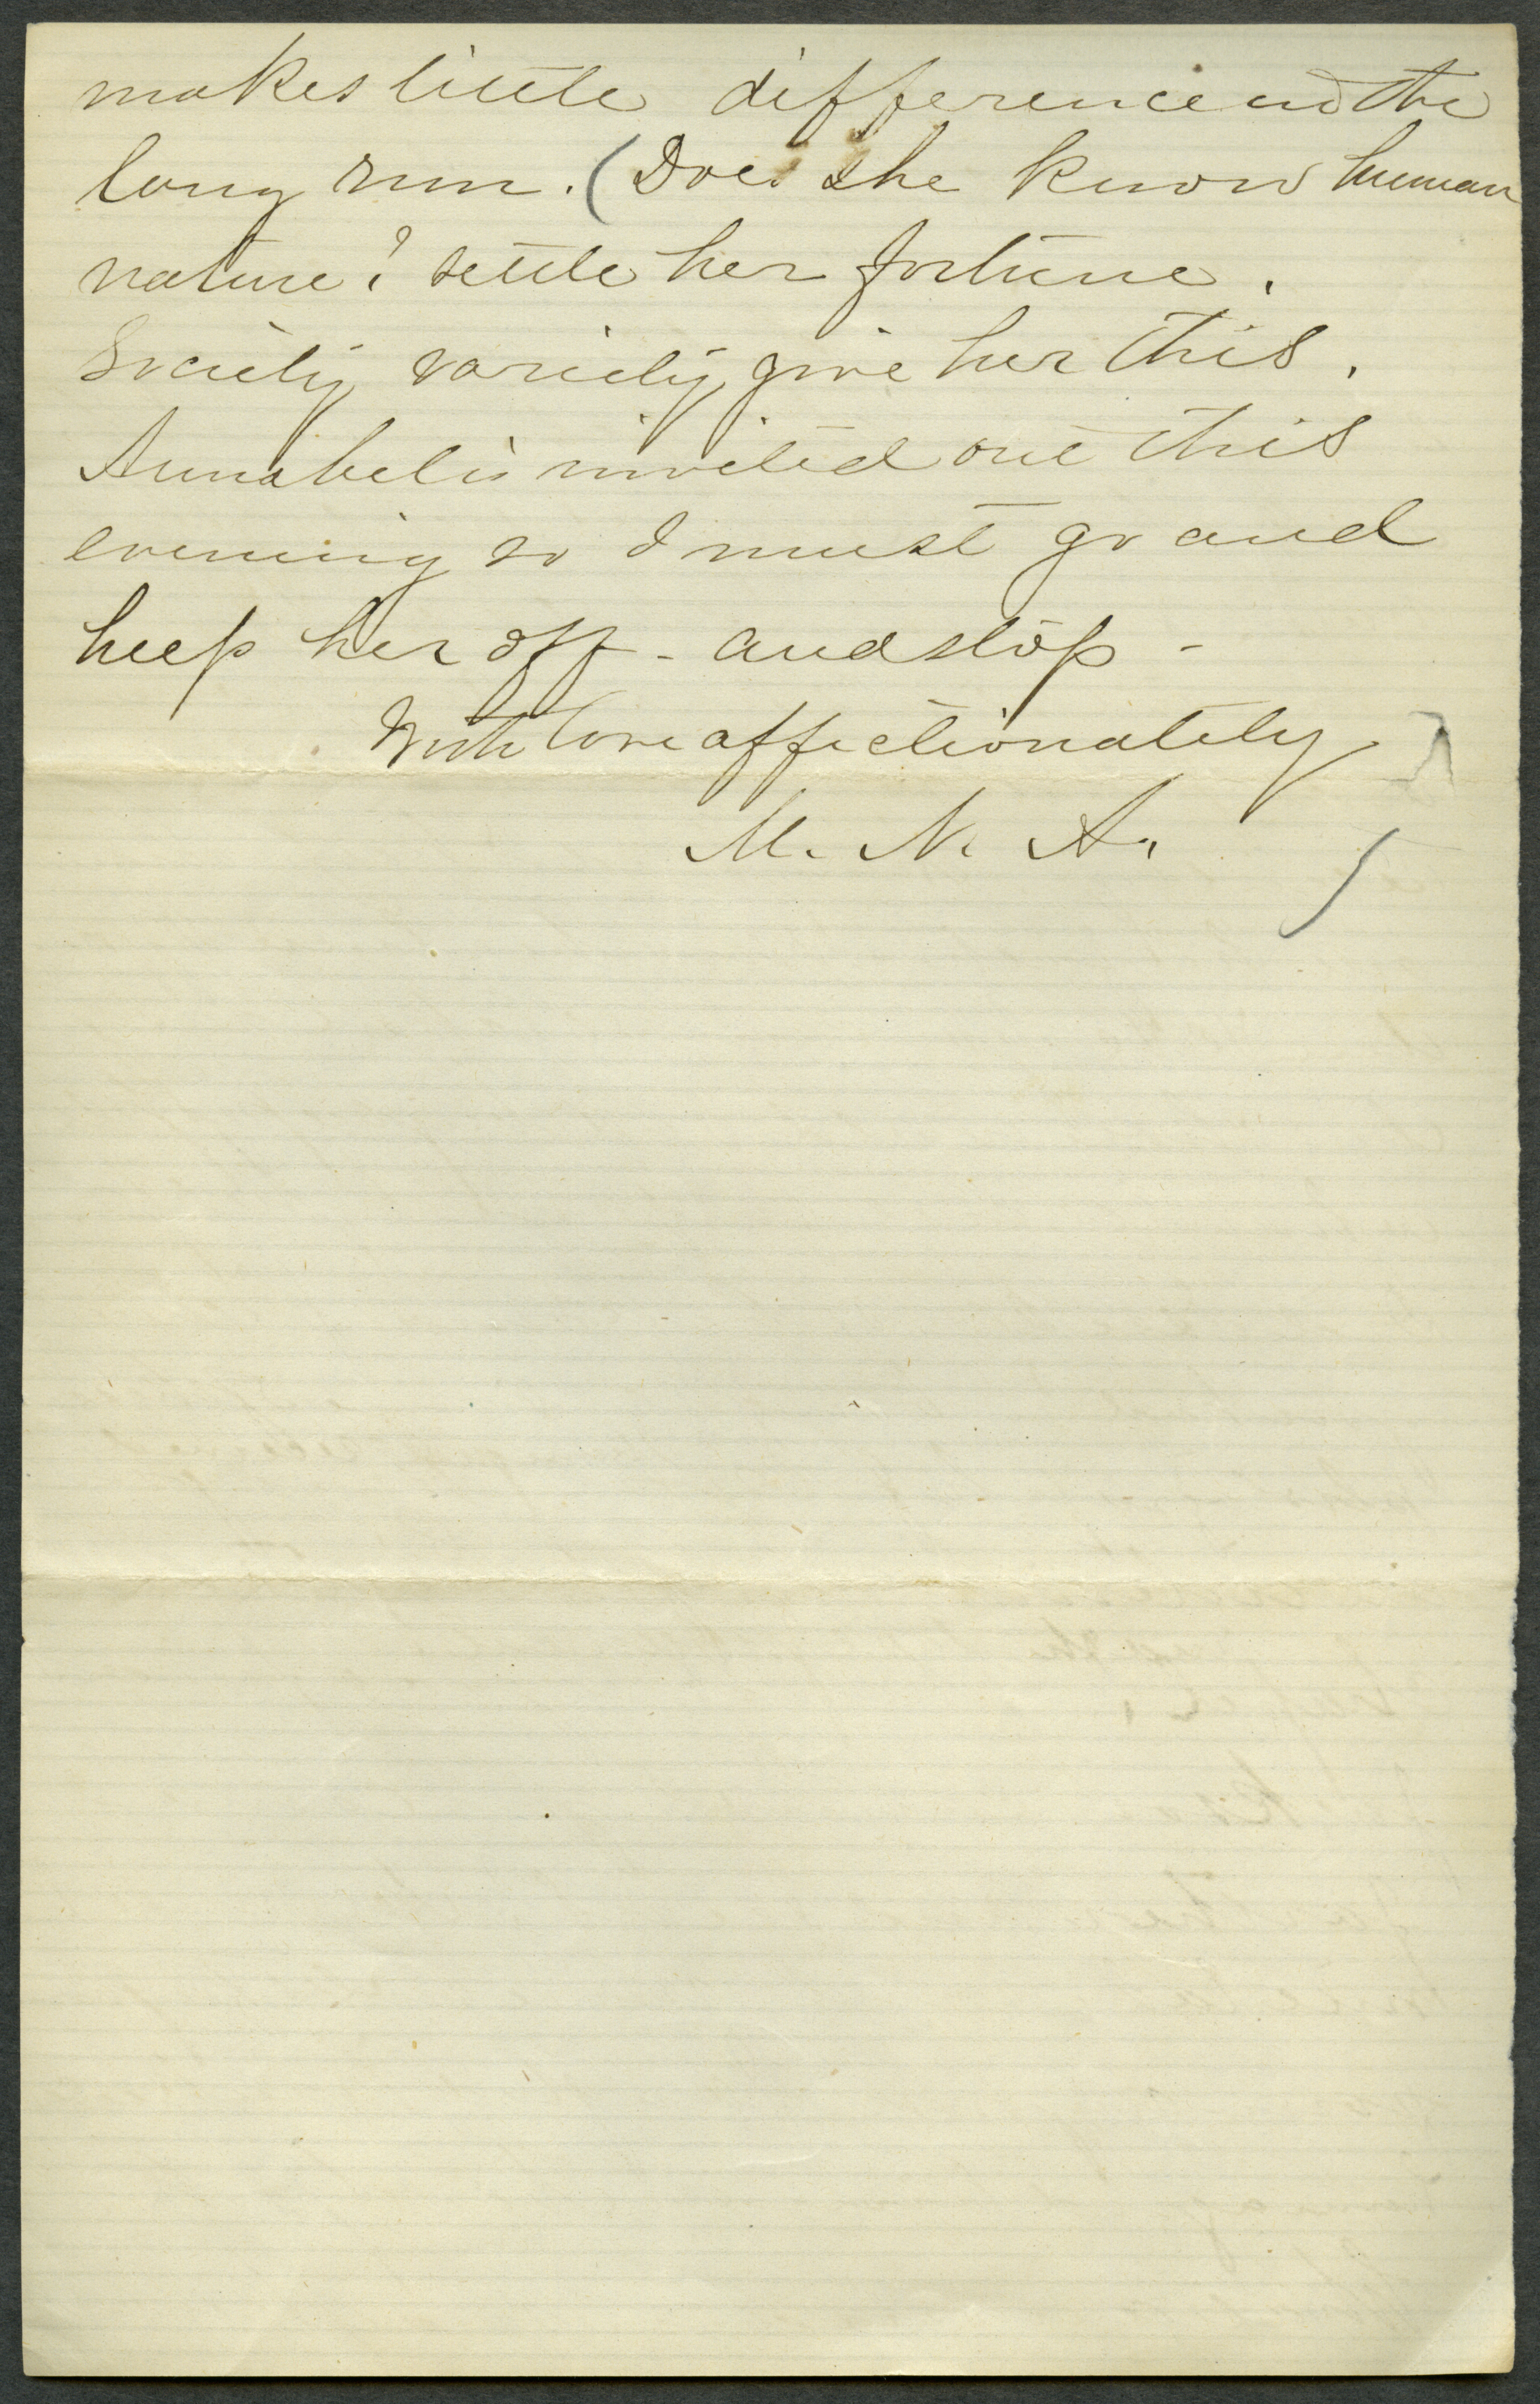 makes little difference in the
long run. (Does she know human
nature? settle her fortune.
Society variety, give her this.
Annabel is invited out this
evening so I must go and
help her off - and stop -
With love affectionately
M. N. A.